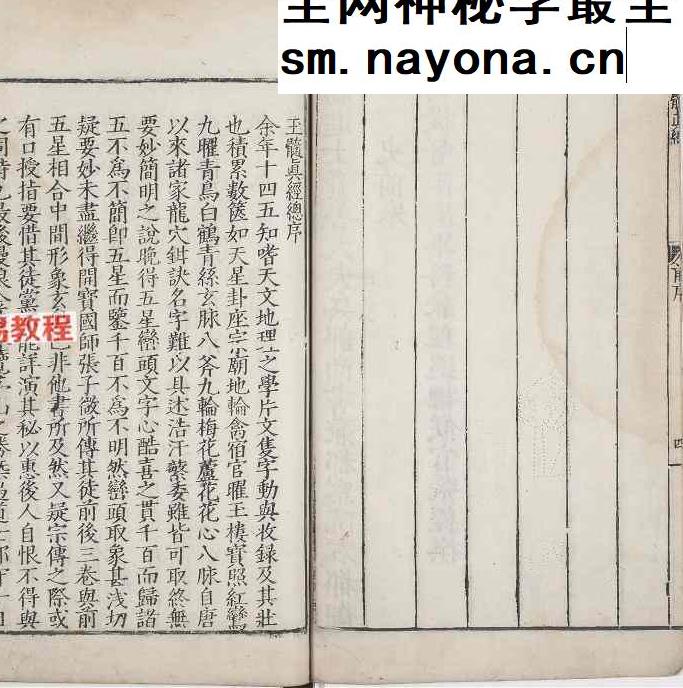 全网神秘学最全
sm.nayona.cn
易教程
玉髓眞經總序
余年十四五知嗜天文地理之學片文隻字動與收錄及其壯
也積累數篋如天星卦座宗廟地輪禽宿官曜玉樓寶照紅鸞
九曜青鳥白鶴青絲玄脉八斧九輪梅花蘆花花心八脉自唐
以來諸家龍穴鉗訣名字難以具述浩汗繁委雖皆可取終無
要妙簡明之說晚得五星巒頭文字心酷喜之貫千百而歸諸
五不爲不簡卽五星而鑒千百不爲不明然巒頭取象甚淺切
疑要妙未盡繼得開寶國師張子微所傳其徒前後三卷與前
五星相合中間形象玄 非他書所及然又疑宗傳之際或
有口授指要惜其徒黨 能詳演其秘以惠後人自恨不得與
之同時
四